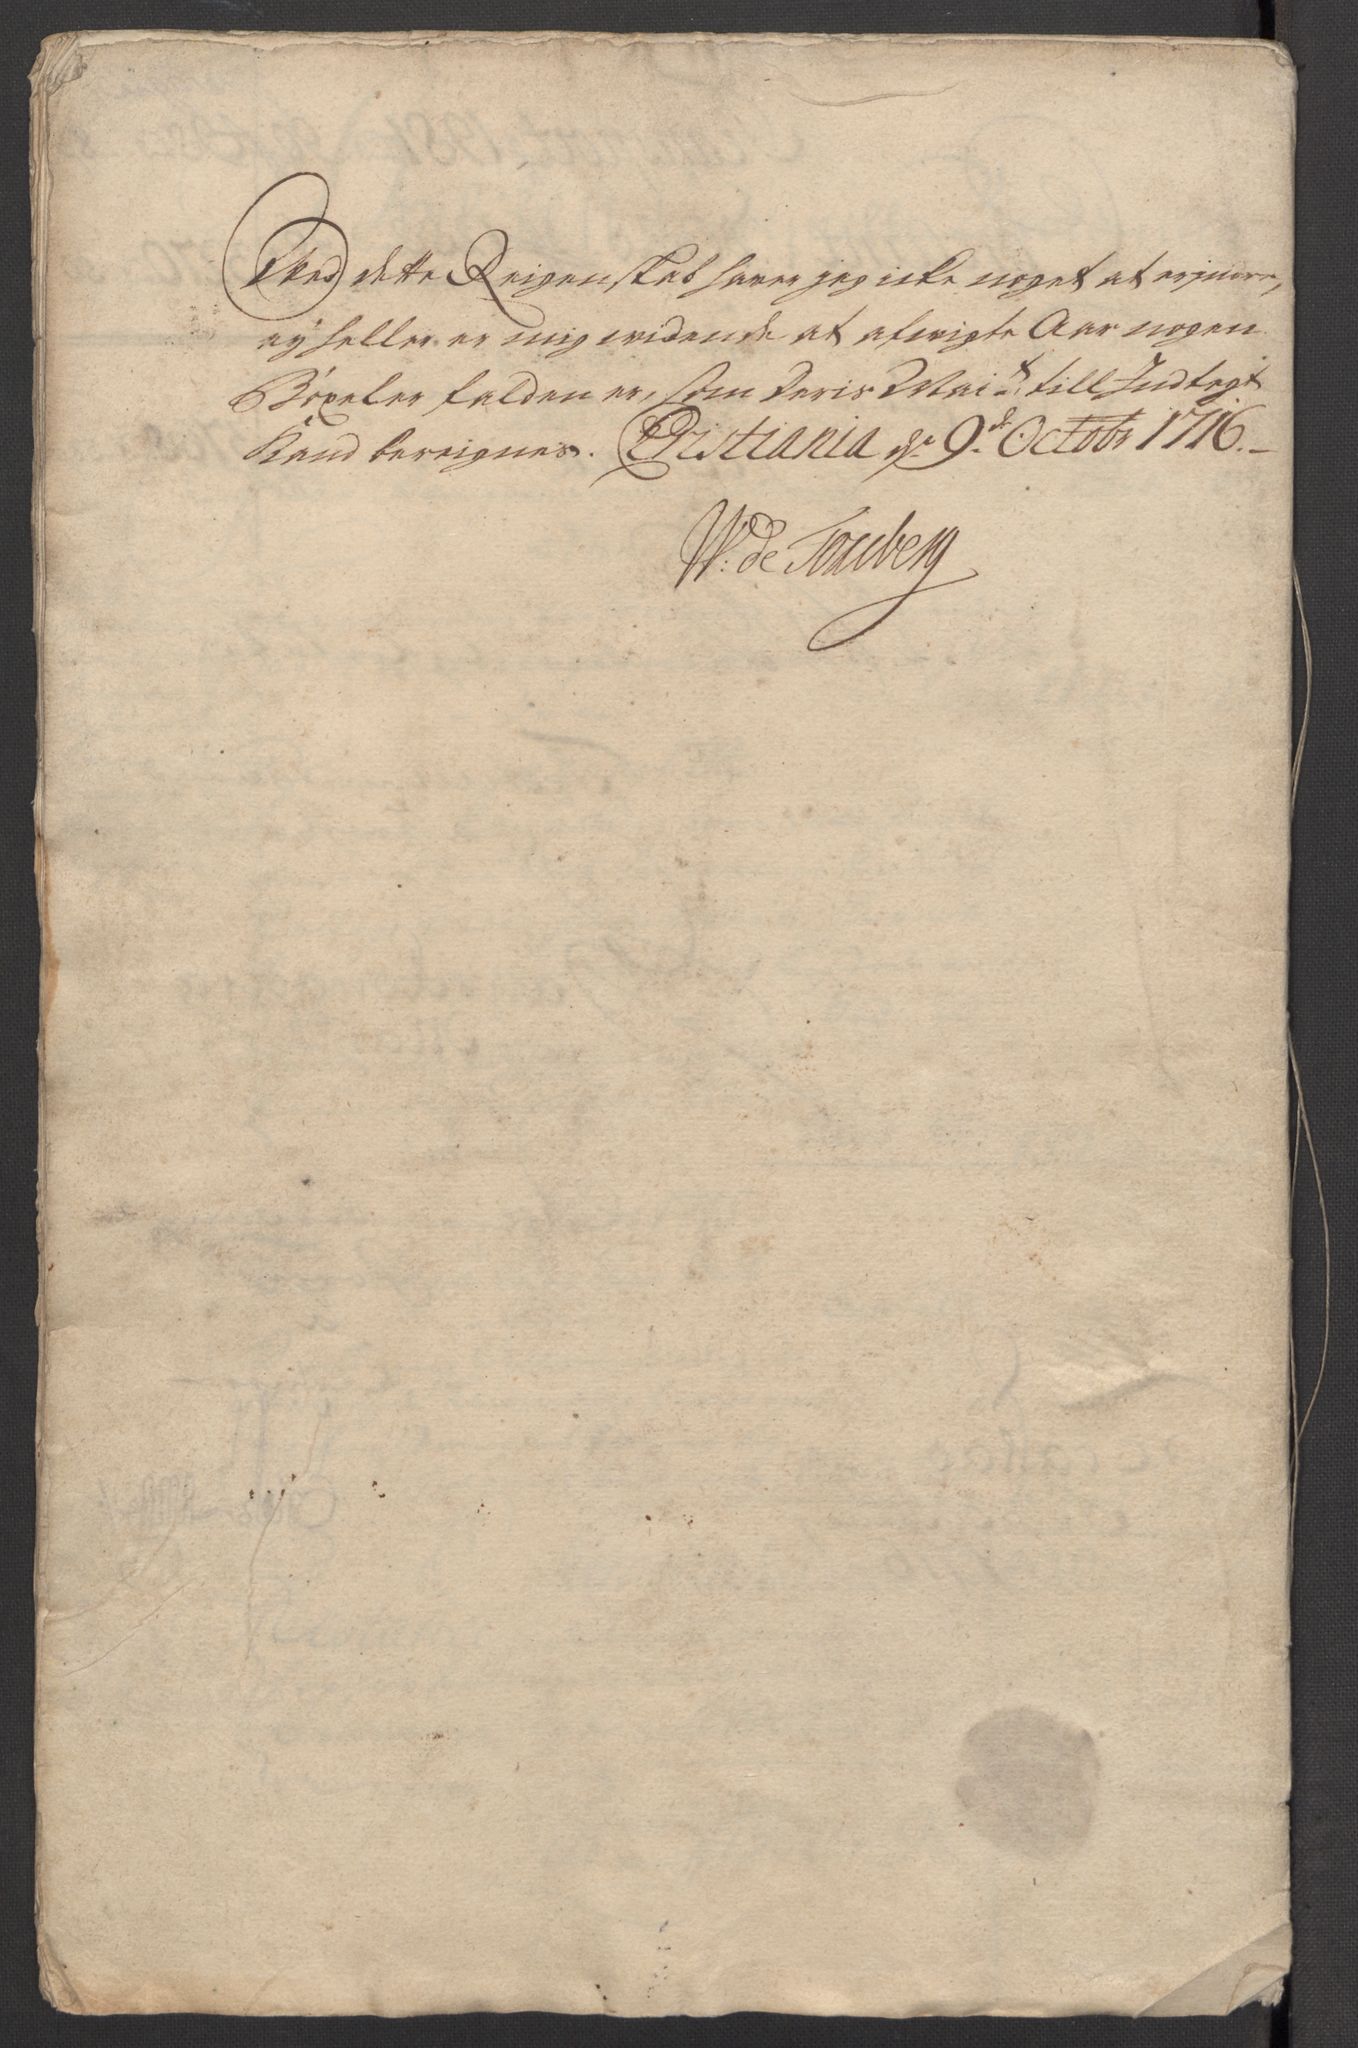 Ved dette Reigenskab haver jeg icke noget at erjnere,
ey heller er mig vidende at afvigte Aar nogen
Böxeler falden er, som Deris Mai.t till Indtegt
Kand bereignes. Christiania d. 9.de Octobr 1716.
W: de Tonsberg